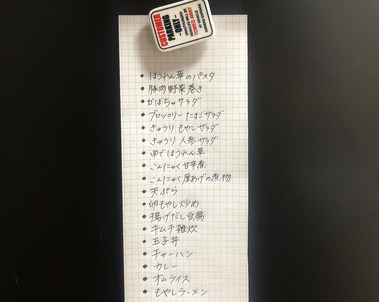 CUSTOMER
PARKING
ONLY
• ほうれん草のパスタ
• 豚肉野菜巻き
• かぼちゃサラダ
• ブロッコリーたまごサラダ
• きゅうりもやしサラダ
• きゅうり人参サラダ
• ゆでほうれん草
• こんにゃく甘辛煮
• こんにゃく厚あげの煮物
• 天ぷら
• 卵もやし炒め
• 揚げだし豆腐
• キムチ雑炊
• 玉子丼
• チャーハン
• カレー
• オムライス
• もやしラーメン